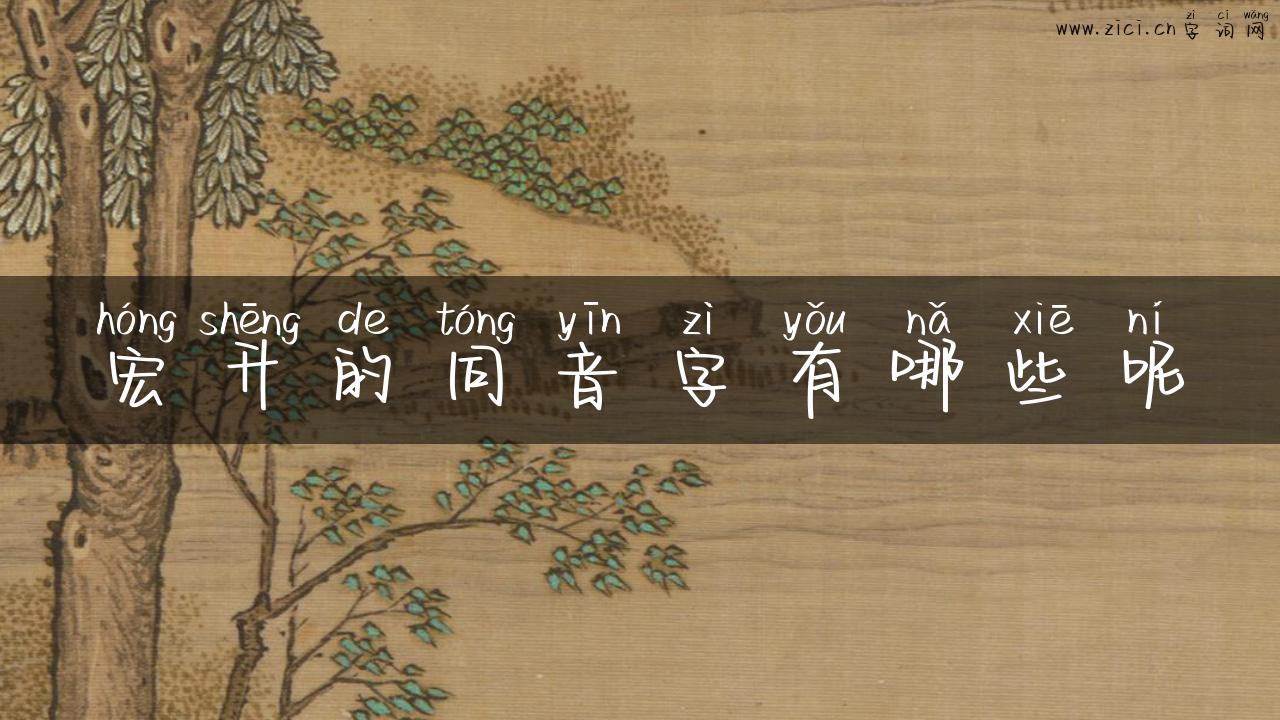 zì cí wǎng
www.zici.cn 字词网
hóng shēng de tóng yīn zì yǒu nǎ xiē ní
宏升的同音字有哪些呢